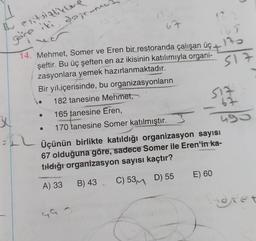 14. Mehmet, Somer ve Eren bir restoranda çalışan üç
şeftir. Bu üç şeften en az ikisinin katılımıyla organi-
zasyonlara yemek hazırlanmaktadır.
Bir yıl içerisinde, bu organizasyonların
• 182 tanesine Mehmet,
• 165 tanesine Eren,
• 170 tanesine Somer katılmıştır.
Üçünün birlikte katıldığı organizasyon sayısı
67 olduğuna göre, sadece Somer ile Eren'in ka-
tıldığı organizasyon sayısı kaçtır?
A) 33 B) 43 C) 53 D) 55 E) 60
67
517
517
67
450